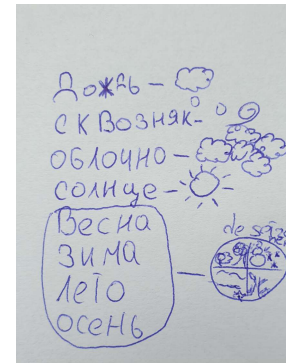 Дождь –
сквозняк –
облочно –
солнце –
Весна
зима
лето
осень